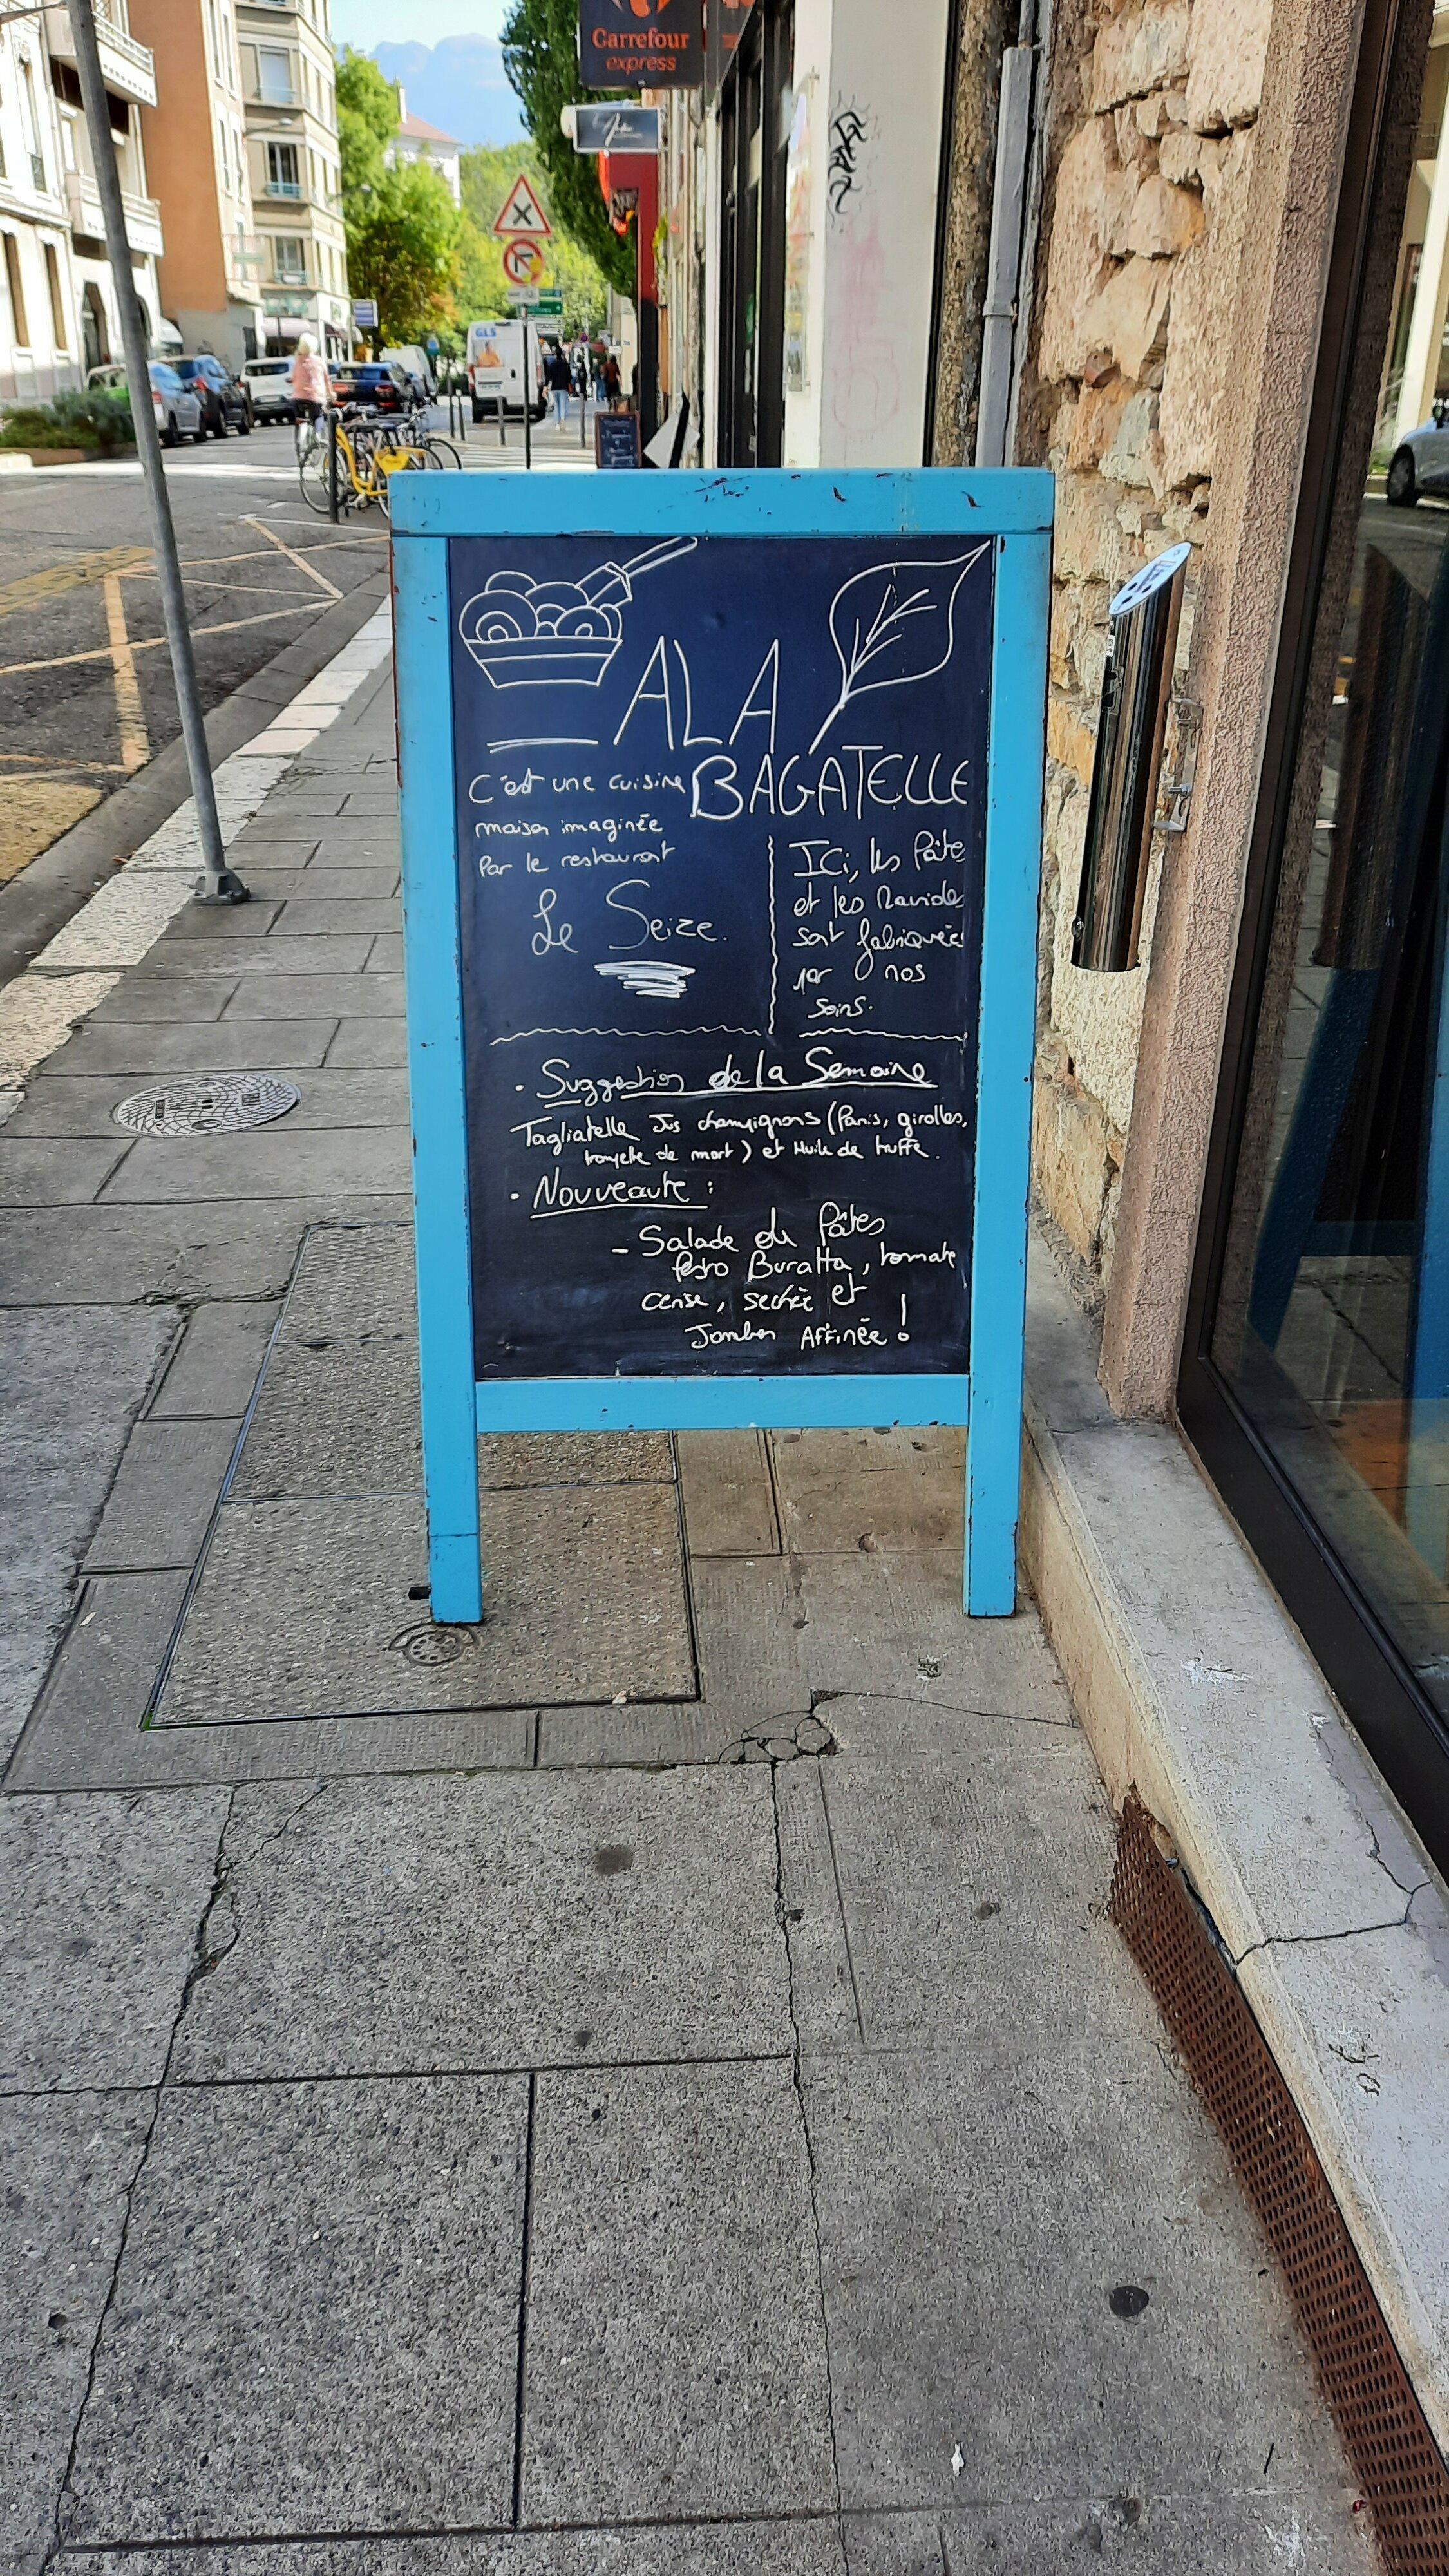 Carrefour
express
GLS
ALA
BAGATELLE
C'est une cuisine
maison imaginée
Par le restaurant
Le Seize.
Ici, les Pâtes
et les Ravioles
sont fabriquées
par nos
soins.
• Suggestion de la Semaine
Tagliatelle Jus champignons (Paris, girolles,
trompette de mort) et Huile de truffe.
• Nouveauté :
- Salade de Pâtes
Pesto Buratta, tomate
cerise, sechée et
Jambon Affinée !